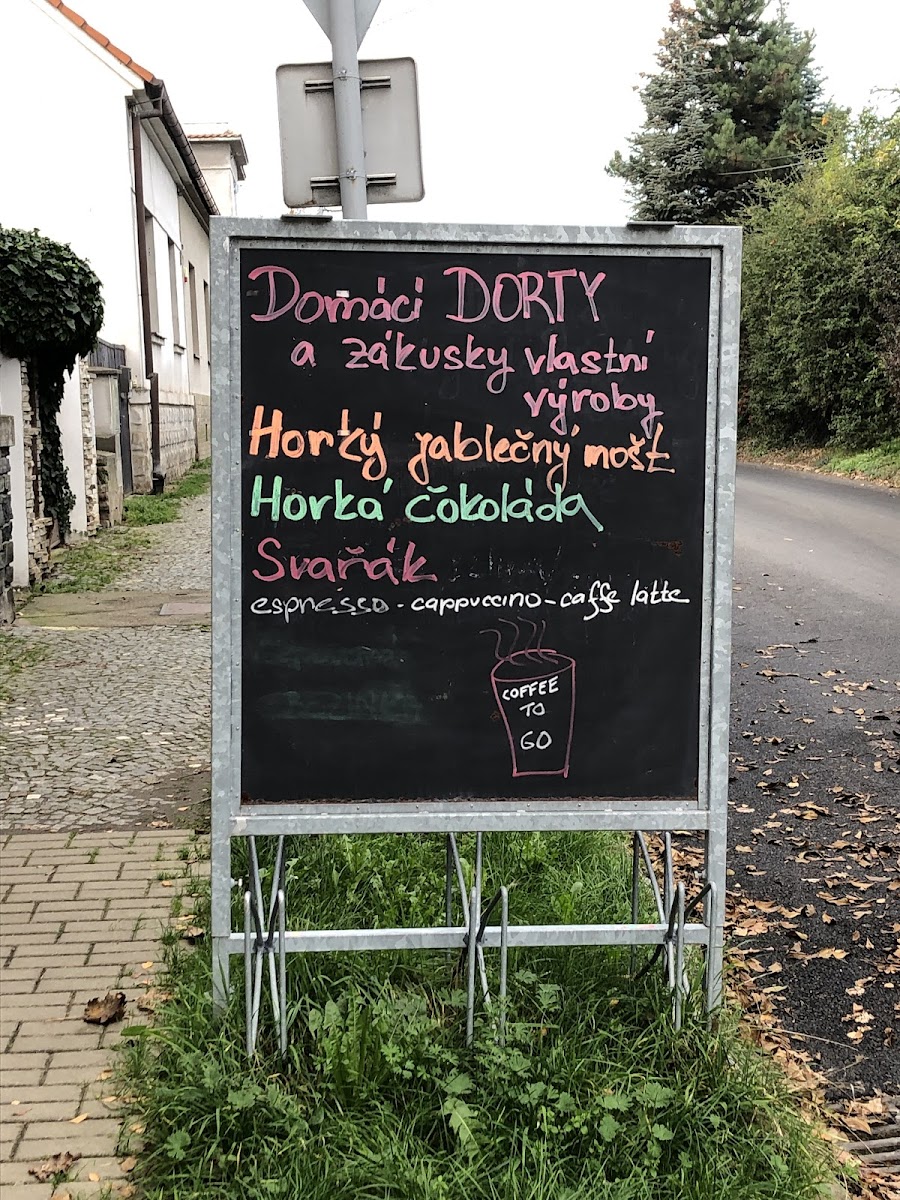 Domácí DORTY
a zákusky vlastní
výroby
Horký jablečný mošt
Horká čokoláda
Svařák
espresso - cappuccino - caffe latte
COFFEE
TO
GO